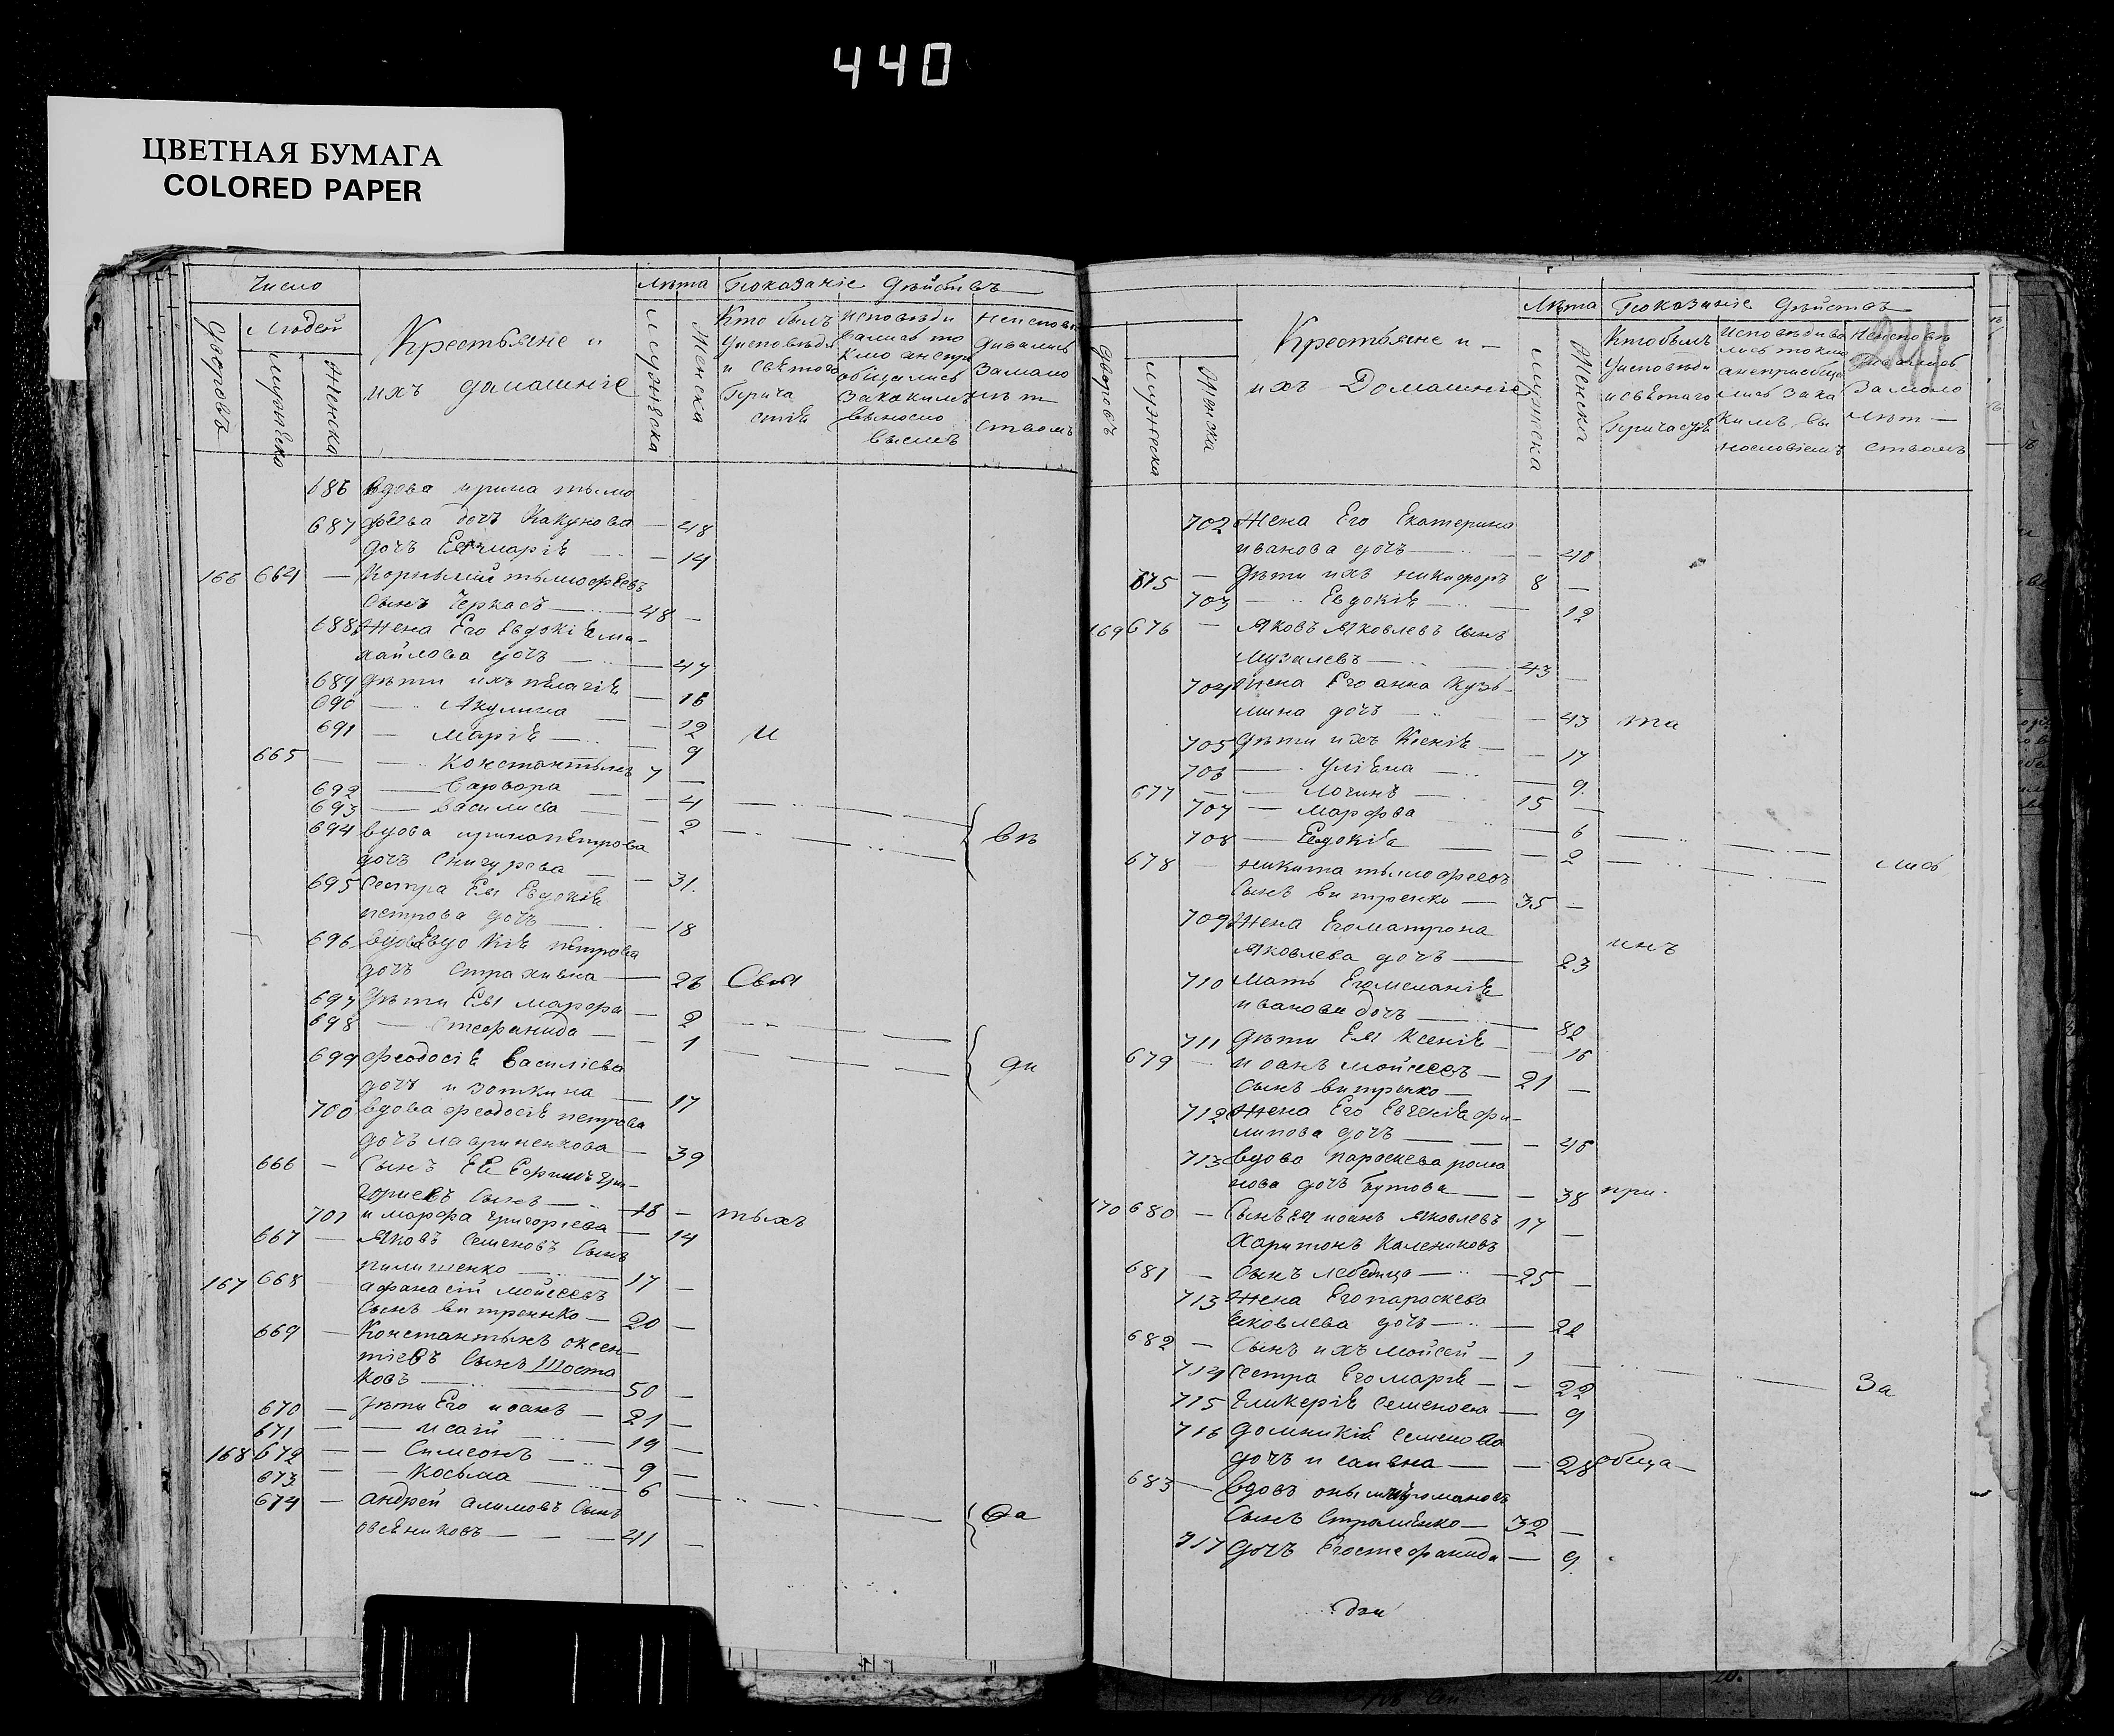 440
ЦВЕТНАЯ БУМАГА
COLORED PAPER
Число
Людей
Дворовъ
Мужеска
Женска
Крестьяне и
ихъ домашніе
Лѣта
Мужеска
Женска
Показаніе дѣйствъ
Кто былъ
у исповѣди
и святаго
прича
стія
исповѣди
вались то
кмо а не прі
общались
за какимъ
неисповѣ
дивались
за мало
лѣт
ствомъ
686 вдова ирина тимо
687 фѣева дочъ Какунова — 48
дочъ — 14
166 664 — Корнилий тимофѣевъ
сынъ Черкасъ — 48 —
688 Жена Его Евдокія ми-
хайлова дочъ — 47
689 дѣти ихъ пелагія — 16
690 — Акулина — 12
691 — Марія — 9
и
665 — Константинъ 7 —
692 — Варвара — 4
693 — Василиса — 2
вѣ
694 вдова ирина петрова
дочъ Снигурева — 31.
695 Сестра Ея Евдокія
петрова дочъ — 18
696 вдова Евдокія петрова
дочъ Страхивна — 26 Свя
697 дѣти Ея марфа — 2
698 — Стефанида — 1
ди
699 феодосія Василіева
дочъ изоткина — 17
700 вдова феодосія петрова
дочъ лавриненкова — 39
666 — Сынъ Ея Ефимъ гри-
гориевъ сынъ — 18 — тыхъ
701 и марфа григоріева — 14
667 — Яковъ Семеновъ Сынъ
пилипенко — 17 —
167 668 афанасій мойсеевъ
Сынъ витренко — 20 —
669 — Константинъ оксен-
тіевъ Сынъ Шоста
ковъ — 50 —
670 — дѣти Его иоанъ — 21 —
671 — исаій — 19 —
168 672 — Симеонъ — 9 —
673 — Косьма — 6 —
674 — андрей алимовъ Сынъ
овсѣниковъ — 41 —
Крестьяне и
ихъ Домашніе
Дворовъ
Мужеска
Женска
Лѣта
Мужеска
Женска
Показаніе дѣйствъ
Кто былъ
у исповѣди
и святаго
исповѣдива
лись токмо
а не приобща
лись за ка
кимъ ви
нословіемъ
неисповѣ
дивались
за мало
лѣт —
ствомъ
702 Жена Его Екатерина
иванова дочъ — 40
675 — дѣти ихъ никифоръ 8 —
703 — Евдокія — 12
169 676 — Яковъ Яковлевъ Сынъ
Музалевъ — 43 —
704 Жена Его анна Кузь-
мина дочъ — 43 та
705 дѣти ихъ Ксенія — 17
706 — Уліяна — 9.
677 — Логинъ — 15 —
707 — Марфва — 6
708 — Евдокія — 2
лись
678 — никита тимофеевъ
Сынъ витренко — 35 —
709 Жена Его матрона
Яковлева дочъ — 23
инъ
710 Мать Его меланія
иванова дочъ — 80
711 дѣти Ея Ксенія — 16
679 — иоанъ мойсеевъ — 21 —
Сынъ витренко —
712 Жена Его Евгенія фи-
липова дочъ — 46
713 вдова параскева рома
нова дочъ Бутова — 38 при
170 680 — Сынъ Ея иоанъ Яковлевъ 17 —
Харитонъ Калениковъ
681 — Сынъ лебедица — 25 —
713 Жена Его параскева
Яковлева дочъ — 22
682 — Сынъ ихъ Мойсей — 1 —
За
714 Сестра Его марія — 22
715 Гликерія Семенова — 9
716 домникія Семенова
дочъ — 28 обща—
683 — Вдовъ романовъ
Сынъ — 32 —
717 дочъ Его стефанида — 9.